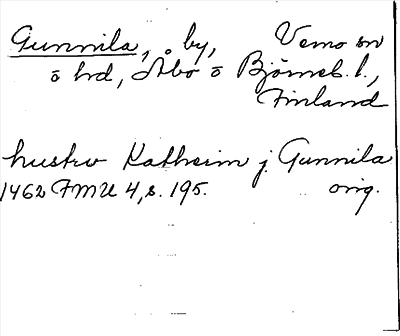 Gunnila, by, Vemo sn
o hd, Åbo o Björneb. l.,
Finland
hustro Katherin j Gunnila
1462 FMU 4, s. 195. orig.